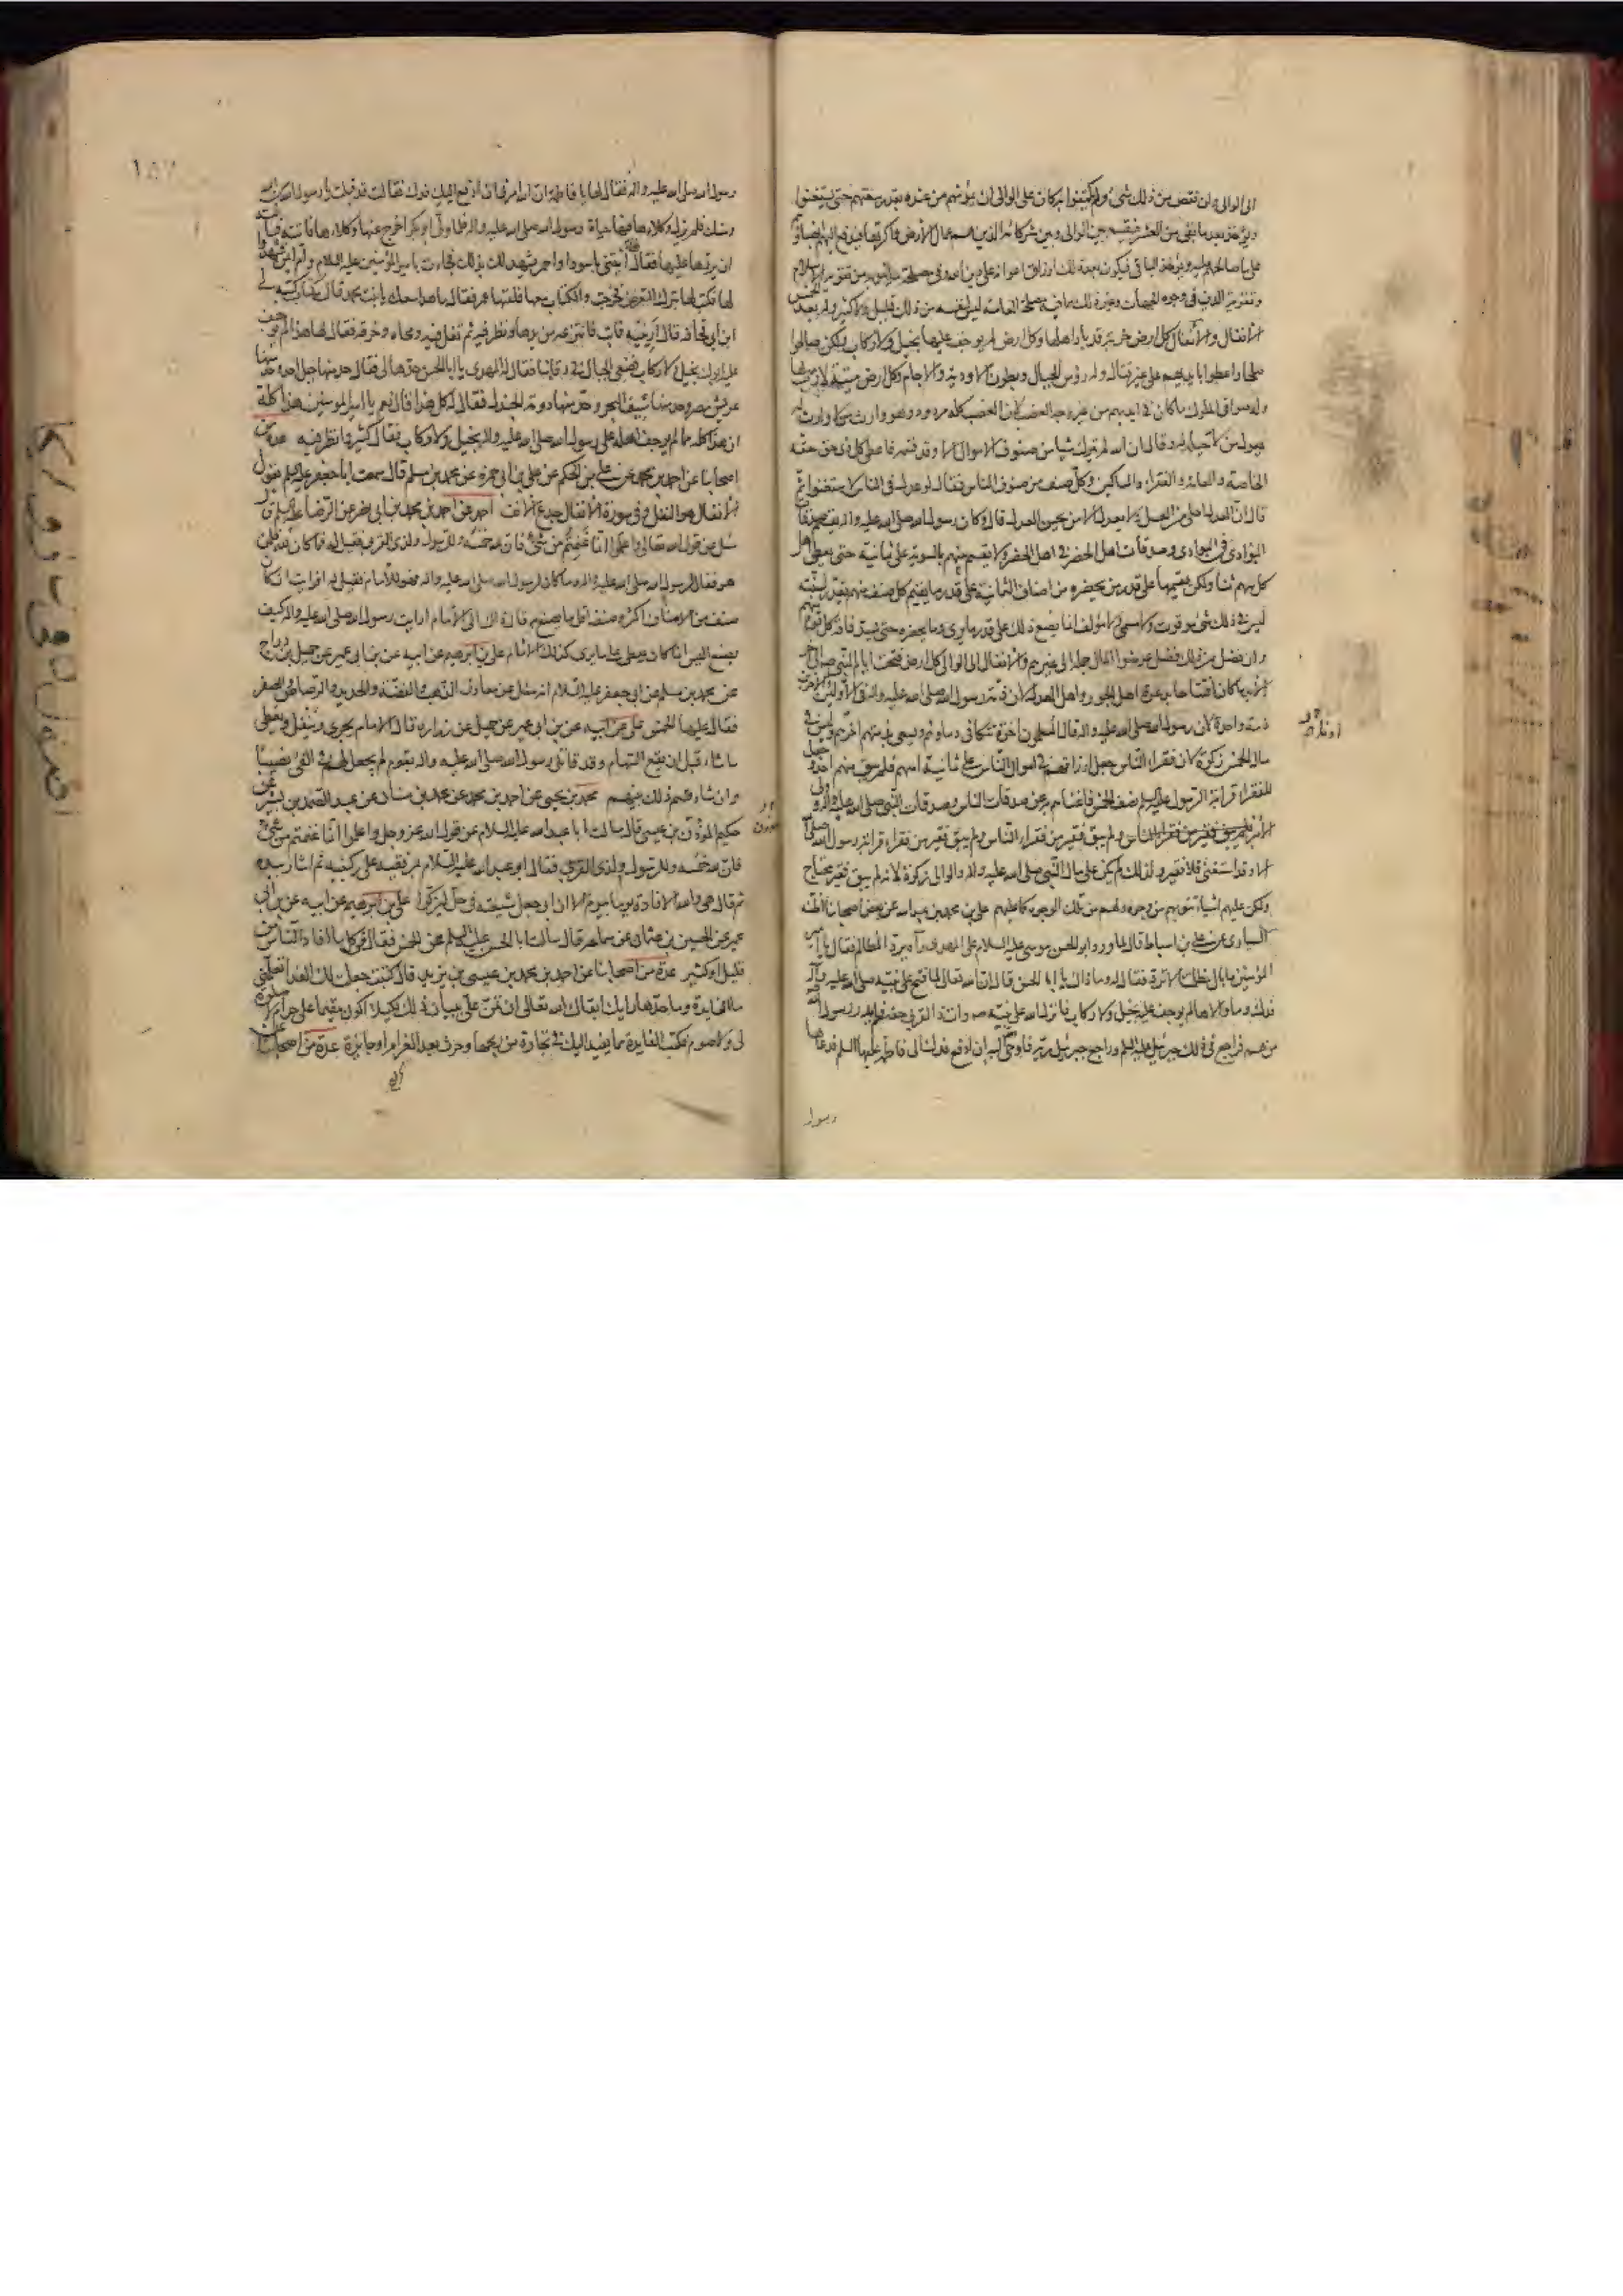 الى الوالى وان نقص من ذلك شئ ولم يكتفوا به كان على الوالى ان يمونهم من عنده بقدر سعتهم حتى يستغنوا
ويؤخذ بعد ما بقى من العشر فيقسم بين الوالى وبين شركائه الذين هم عمال الارض واكرتها فيدفع اليهم انصباؤهم
على ما صالحهم عليه ويؤخذ الباقى فيكون بعد ذلك ارزاق اعوانه على دين الله وفى مصلحة ما ينوبه من تقوية الاسلام
وتقوية الدين فى وجوه الجهاد وغير ذلك مما فيه مصلحة العامة ليس لنفسه من ذلك قليل ولا كثير وله بعد الخمس
الانفال والانفال كل ارض خربة قد باد اهلها وكل ارض لم يوجف عليها بخيل ولا ركاب ولكن صالحوا
صلحا واعطوا بايديهم على غير قتال وله رؤس الجبال وبطون الاودية والاجام وكل ارض ميتة لا رب لها
وله صوافى الملوك ما كان فى ايديهم من غير وجه الغصب لان الغصب كله مردود وهو وارث من لا وارث له
يعول من لا حيلة له وقال ان الله لم يترك شيئا من صنوف الاموال الا وقد قسمه فاعطى كل ذى حق حقه
الخاصة والعامة والفقراء والمساكين وكل صنف من صنوف الناس فقال لو عدل فى الناس لاستغنوا ثم
قال ان العدل احلى من العسل ولا يعدل الا من يحسن العدل قال وكان رسول الله صلى الله عليه واله يقسم صدقات
البوادى فى البوادى وصدقات اهل الحضر فى اهل الحضر ولا يقسم بينهم بالسوية على ثمانية حتى يعطى اهل
كل سهم ثمنا ولكن يقسمها على قدر من يحضره من اصناف الثمانية على قدر ما يقيم كل صنف منهم يقدر لسنته
ليس فى ذلك شئ موقوت ولا مسمى ولا مؤلف انما يصنع ذلك على قدر ما يرى وما يحضره حتى يسد فاقة كل قوم منهم
وان فضل من ذلك فضل عرضوا المال جملة الى غيرهم والانفال الى الوالى كل ارض فتحت ايام النبى صلى الله عليه
ذمة واحدة لان رسول الله صلى الله عليه واله قال المسلمون اخوة تتكافى دماؤهم ويسعى بذمتهم اخرهم وليس فى
مال الخمس زكوة لان فقراء الناس جعل ارزاقهم فى اموال الناس على ثمانية اسهم فلم يبق منهم احد وجعل
للفقراء قرابة الرسول عليه السلم نصف الخمس فاغناهم به عن صدقات الناس وصدقات النبى صلى الله عليه واله وولى
الامر فلم يبق فقير من فقراء الناس ولم يبق فقير من فقراء قرابة رسول الله صلى
الا وقد استغنى فلا فقير ولذلك لم يكن على مال النبى صلى الله عليه واله والوالى زكوة لانه لم يبق فقير محتاج
ولكن عليهم اشياء تنوبهم من وجوه ولهم من تلك الوجوه كما عليهم على بن محمد بن عبد الله عن بعض اصحابنا اظنه
السيارى عن على بن اسباط قال لما ورد ابو الحسن موسى عليه السلام على المهدى رآه يرد المظالم فقال يا امير
المؤمنين ما بال مظلمتنا لا ترد فقال له وما ذاك يا ابا الحسن قال ان الله تعالى لما فتح على نبيه صلى الله عليه واله
فدك وما والاها لم يوجف عليه بخيل ولا ركاب فانزل الله على نبيه ص وات ذا القربى حقه فلم يدر رسول الله
من هم فراجع فى ذلك جبرئيل عليه السلم وراجع جبرئيل ربه فاوحى اليه ان ادفع فدك الى فاطمة عليها السلم فدعاها
رسول
رسول الله صلى الله عليه واله فقال لها يا فاطمة ان الله امرنى ان ادفع اليك فدك فقالت قد قبلت يا رسول الله من الله
ومنك فلم يزل وكلاءها فيها حياة رسول الله صلى الله عليه واله فلما ولى ابو بكر اخرج عنها وكلاءها فاتته فسألته
ان يردها عليها فقال ائتينى باسود او احمر يشهد لك بذلك فجاءت بامير المؤمنين عليه السلام وام ايمن فشهدا
لها فكتب لها بترك التعرض فخرجت والكتاب معها فلقيها عمر فقال ما هذا معك يا بنت محمد قال كتاب كتبه لى
ابن ابى قحافة قال ارينيه فابت فانتزعه من يدها ونظر فيه ثم تفل فيه ومحاه وخرقه فقال لها هذا لم يوجف
عليه ابوك بخيل ولا ركاب فضعى الحبال فى رقابنا فقال له المهدى يا ابا الحسن حدها لى فقال حد منها جبل احد وحد منها
عريش مصر وحد منها سيف البحر وحد منها دومة الجندل فقال له كل هذا قال نعم يا امير المؤمنين هذا كله
ان هذا كله مما لم يوجف اهله على رسول الله صلى الله عليه واله بخيل ولا ركاب فقال كثير وانظر فيه عدة من
اصحابنا عن احمد بن محمد عن على بن الحكم عن على بن ابى حمزة عن محمد بن مسلم قال سمعت ابا جعفر عليه السلم يقول
الانفال هو النفل وفى سورة الانفال جدع الانف احمد عن احمد بن محمد بن ابى نصر عن الرضا عليه السلم قال
سئل عن قول الله تعالى واعلموا انما غنمتم من شئ فان لله خمسه وللرسول ولذى القربى فقيل له فما كان لله فلمن
هو فقال لرسول الله صلى الله عليه واله وما كان لرسول الله صلى الله عليه واله فهو للامام فقيل له افرايت ان كان
صنف من الاصناف اكثر وصنف اقل ما يصنع به قال ذاك الى الامام ارايت رسول الله صلى الله عليه واله كيف
يصنع اليس انما كان يعطى على ما يرى كذلك الامام على بن ابرهيم عن ابيه عن ابن ابى عمير عن جميل بن دراج
عن محمد بن مسلم عن ابى جعفر عليه السلام انه سئل عن معادن الذهب والفضة والحديد والرصاص والصفر
فقال عليها الخمس على عن ابيه عن ابن ابى عمير عن جميل عن زرارة قال الامام يجرى وينفل ويعطى
ما شاء قبل ان تقع السهام وقد قاتل رسول الله صلى الله عليه واله بقوم لم يجعل لهم فى الفئ نصيبا
وان شاء قسم ذلك بينهم محمد بن يحيى عن احمد بن محمد عن محمد بن سنان عن عبد الصمد بن بشير عن
حكيم المؤذن بن عيسى قال سالت ابا عبد الله عليه السلام عن قول الله عز وجل واعلموا انما غنمتم من شئ
فان لله خمسه وللرسول ولذى القربى فقال ابو عبد الله عليه السلام بمرفقيه على ركبتيه ثم اشار بيده
ثم قال هى والله الافادة يوما بيوم الا ان ابى جعل شيعته فى حل ليزكوا على بن ابرهيم عن ابيه عن ابن ابى
عمير عن الحسين بن عثمان عن سماعة قال سالت ابا الحسن عليه السلم عن الخمس فقال فى كل ما افاد الناس من
قليل او كثير عدة من اصحابنا عن احمد بن محمد بن عيسى بن يزيد قال كتبت جعلت لك الفداء تعلمنى
ما الفايدة وما حدها رايك ابقاك الله تعالى ان تمن على ببيان ذلك لكيلا اكون مقيما على حرام لا صلوة
لى ولا صوم فكتب الفايدة مما يفيد اليك فى تجارة من ربحها وحرث بعد الغرام او جايزة عدة من اصحابنا